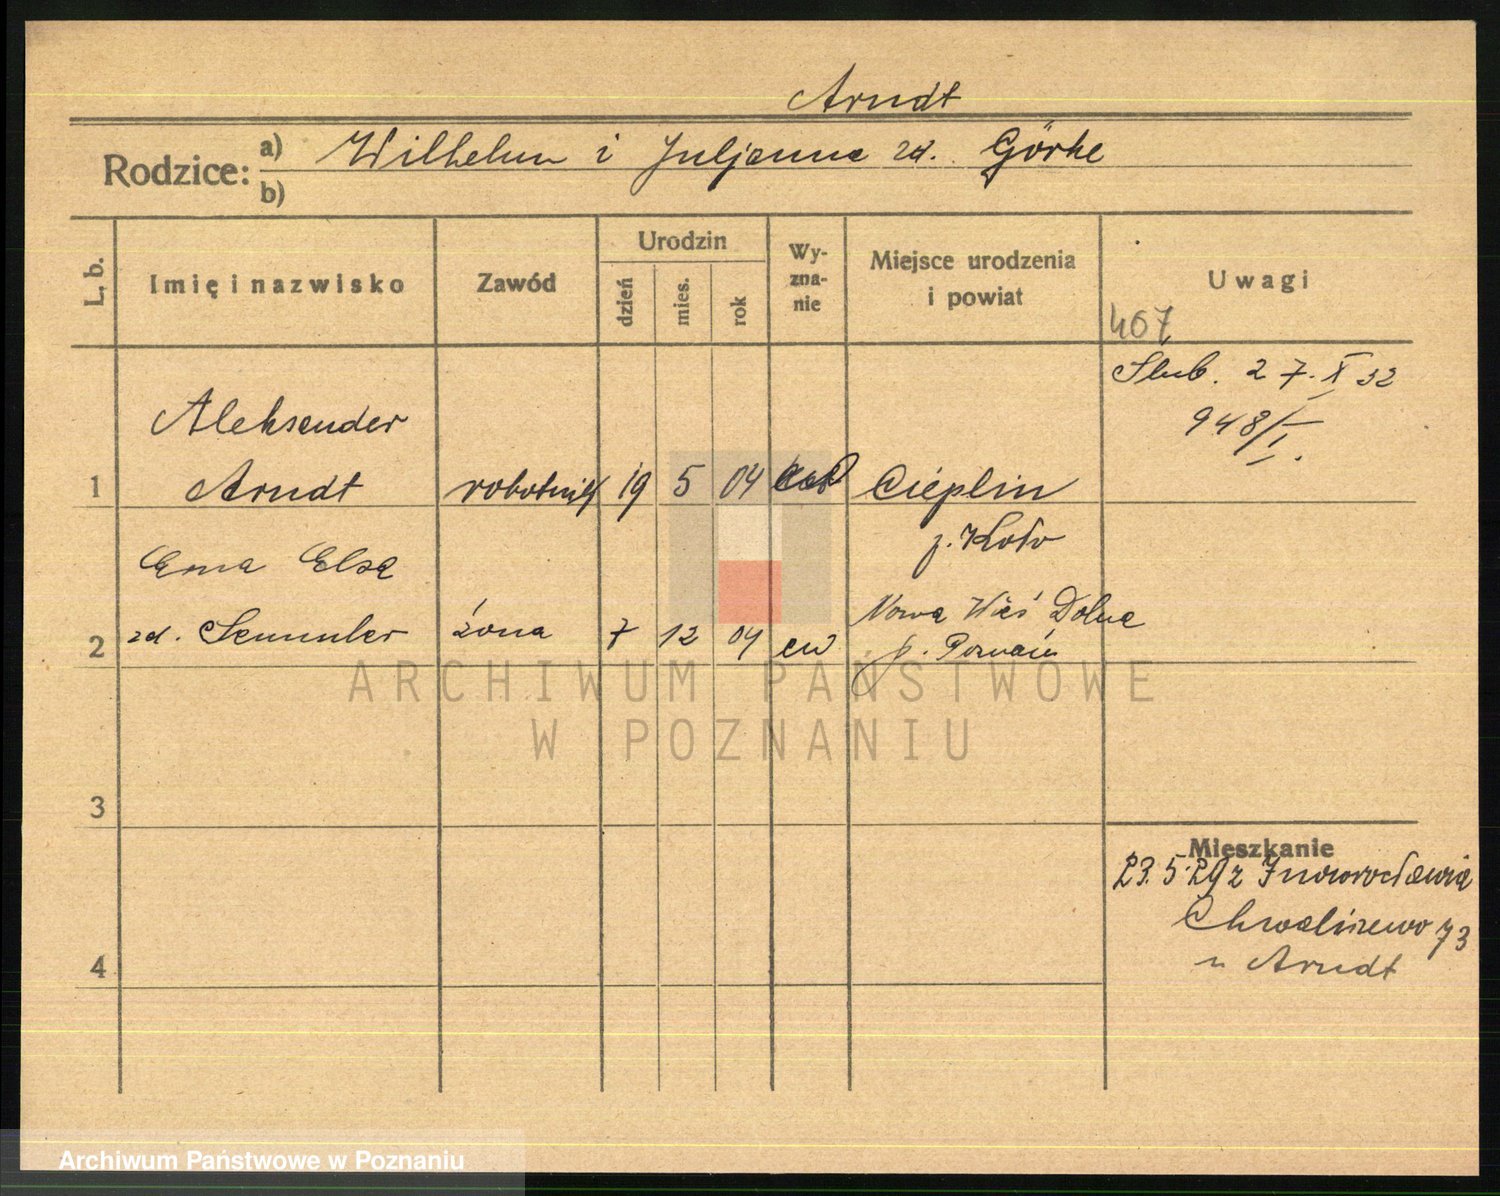 Arndt
Rodzice: a) Wilhelm i Juljanna zd. Görke
b)
L. b.
Imię i nazwisko
Zawód
Urodzin
dzień
mies.
rok
Wy-
zna-
nie
Miejsce urodzenia
i powiat
Uwagi
407
Ślub. 27. X 32
948/I.
Aleksander
1 Arndt robotnik 19 5 04 Cieplin
p. Koło
Erna Elsa
2 zd. Semmler żona 7 12 04 ew Nowa Wieś Dolna
p. Poznań
ARCHIWUM PAŃSTWOWE
W POZNANIU
3
Mieszkanie
23.5.29 z Inowrocławia
Chwaliszewo 73
u Arndt
4
Archiwum Państwowe w Poznaniu